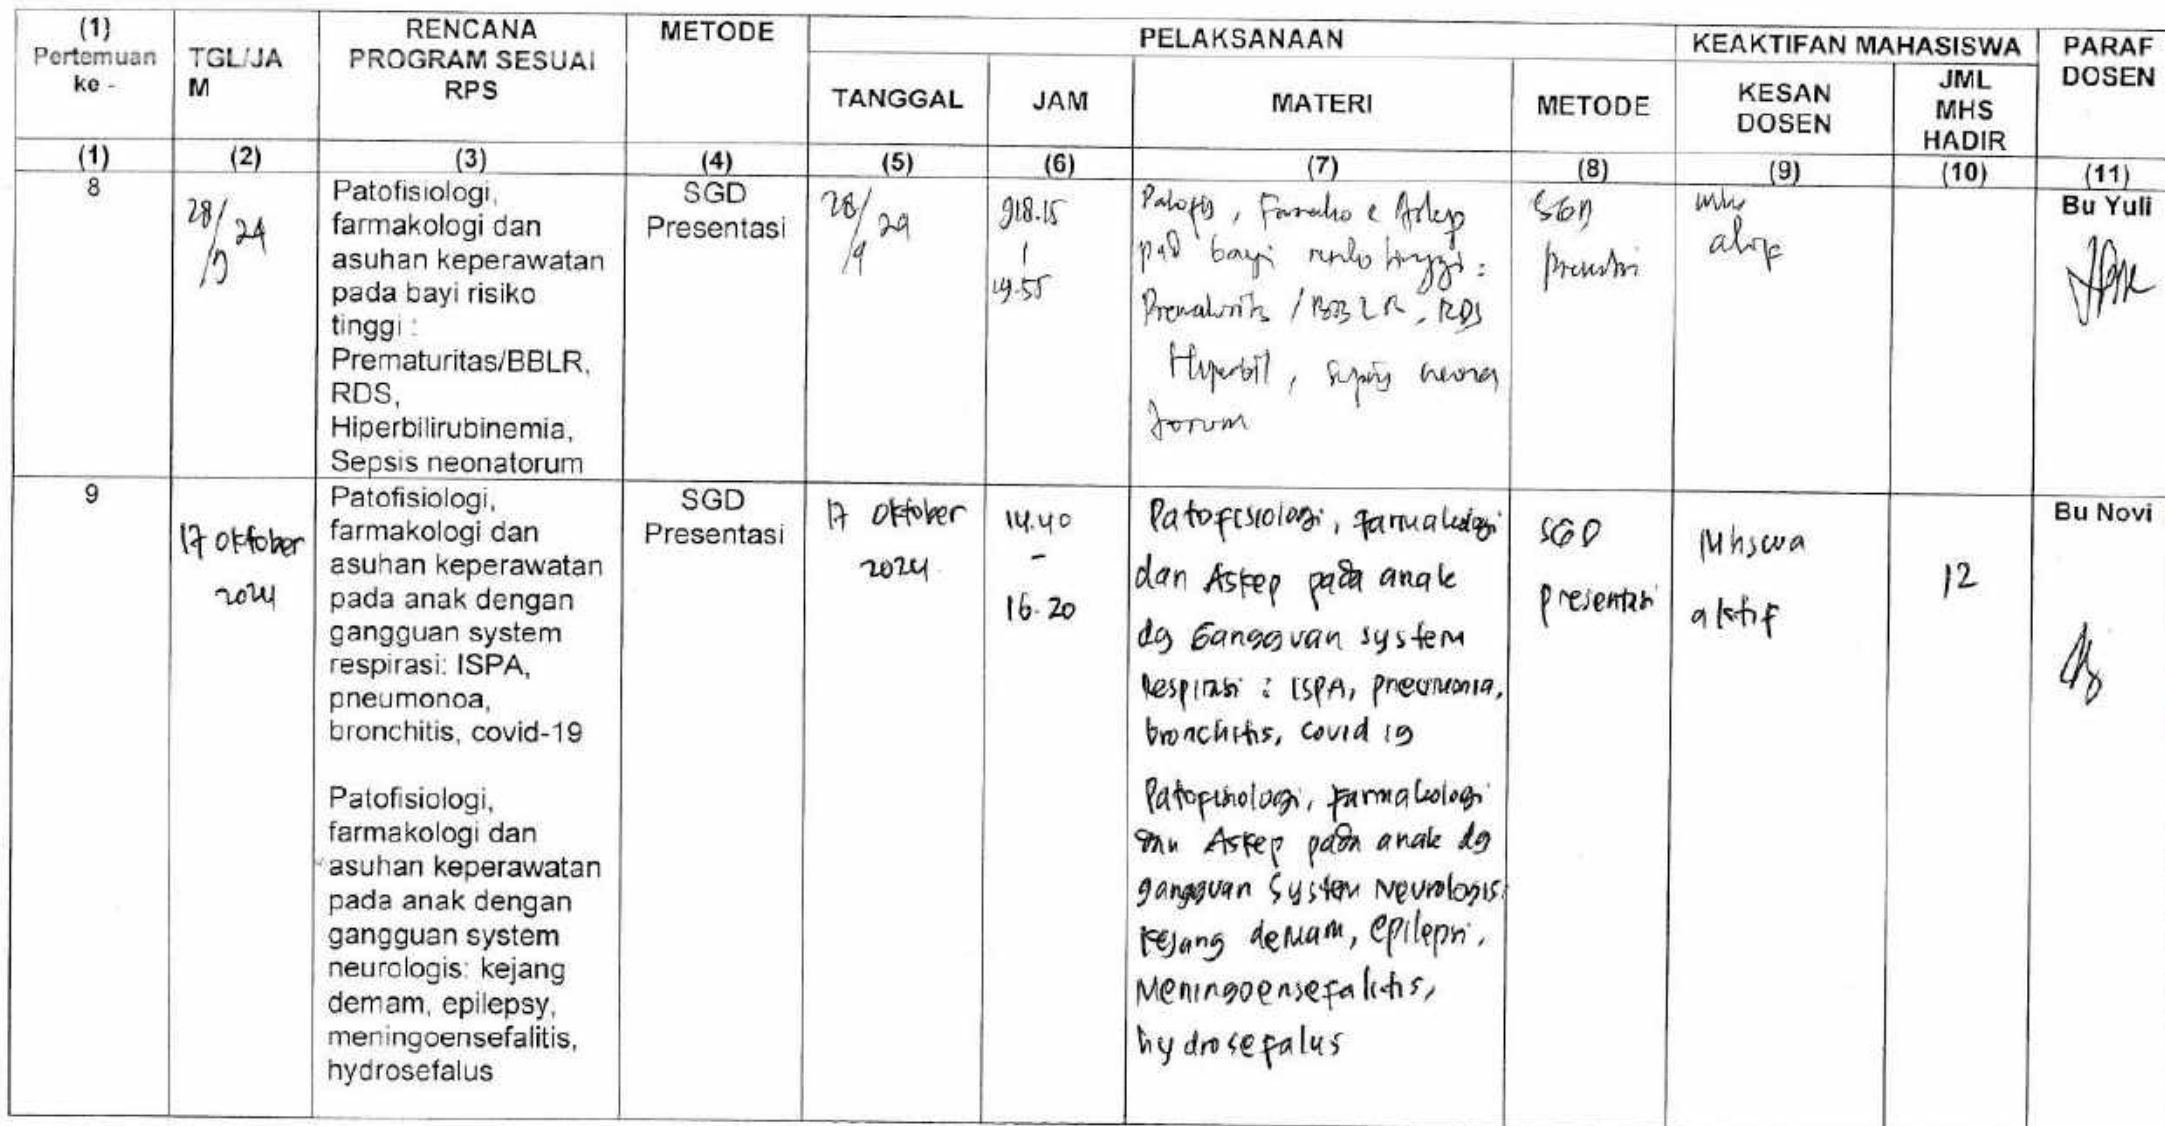 (1)
Pertemuan
ke -
TGL/JA
M
RENCANA
PROGRAM SESUAI
RPS
METODE
PELAKSANAAN
TANGGAL
JAM
MATERI
METODE
KEAKTIFAN MAHASISWA
KESAN
DOSEN
JML
MHS
HADIR
PARAF
DOSEN
(1)
(2)
(3)
(4)
(5)
(6)
(7)
(8)
(9)
(10)
(11)
8
28/
24
/9
Patofisiologi,
farmakologi dan
asuhan keperawatan
pada bayi risiko
tinggi :
Prematuritas/BBLR,
RDS,
Hiperbilirubinemia,
Sepsis neonatorum
SGD
Presentasi
28/
/9
18.15
19.55
bayi
/ BBLR, RDS
SGD
Bu Yuli
9
17 Oktober
2024
Patofisiologi,
farmakologi dan
asuhan keperawatan
pada anak dengan
gangguan system
respirasi: ISPA,
pneumonoa,
bronchitis, covid-19
Patofisiologi,
farmakologi dan
asuhan keperawatan
pada anak dengan
gangguan system
neurologis: kejang
demam, epilepsy,
meningoensefalitis,
hydrosefalus
SGD
Presentasi
17 Oktober
2024
14.40
-
16.20
Patofisiologi, farmakologi
dan Askep pada anak
dg Gangguan system
Respirasi : ISPA, pneumonia,
bronchitis, covid 19
Patofisiologi, farmakologi
dan Askep pada anak dg
gangguan system Neurologis:
kejang demam, epilepsi,
Meningoensefalitis,
hydrosefalus
SGD
presentasi
Mhswa
aktif
12
Bu Novi